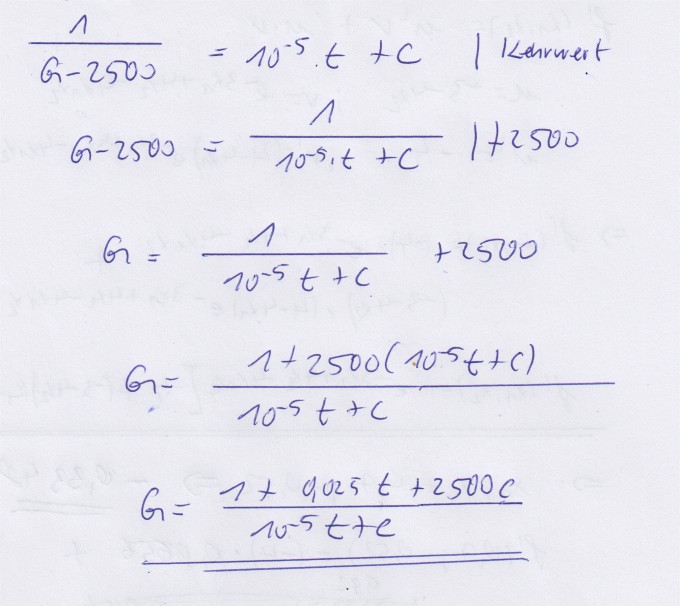 1/(G-2500) = 10^-5 · t + C | Kehrwert
G-2500 = 1/(10^-5 · t + C) | +2500
G = 1/(10^-5 t + C) + 2500
G = (1 + 2500(10^-5 t + C))/(10^-5 t + C)
G = (1 + 0,025 t + 2500 C)/(10^-5 t + C)